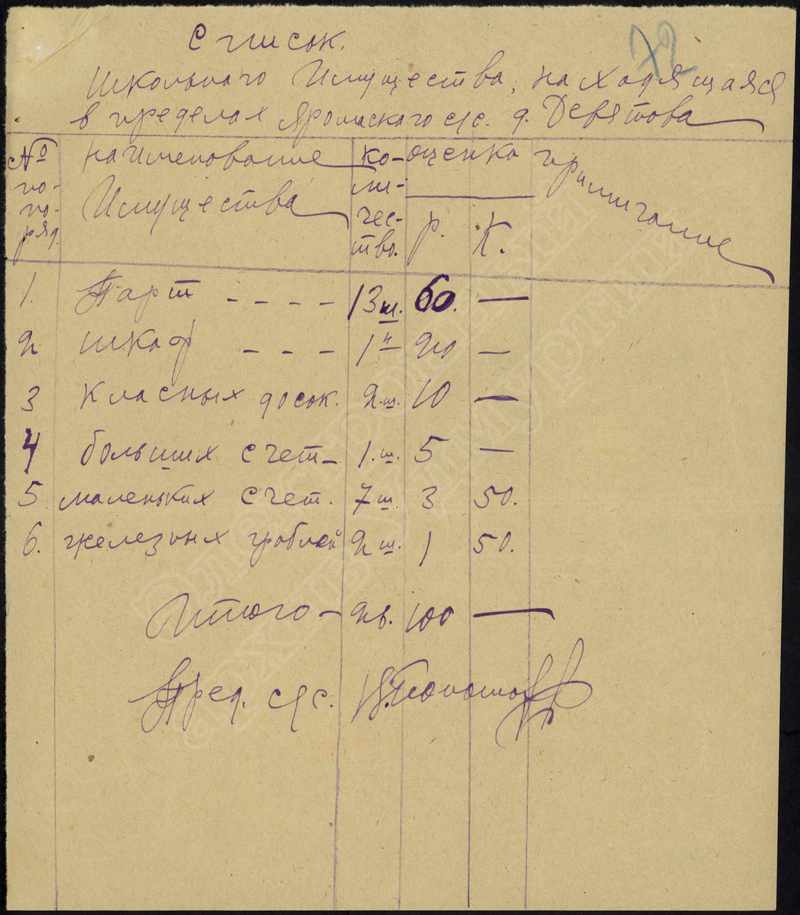 72
Список.
Школьного Имущества, находящаяся
в пределах с/с. д. Девятова
№ по-по-ряд. | наименование Имущества | ко-ли-чес-тво. | оценка р. к. | примичание
1. Парт - - - - 13 ш. 60. —
2 шкаф - - - 1 " 20 —
3 Класных досок. 2.ш. 10 —
4 больших счет - 1.ш. 5 —
5. маленьких счет. 7 ш. 3 50.
6. железных граблей 2 ш. 1 50.
Итого - 26. 100 —
Пред. с/с.